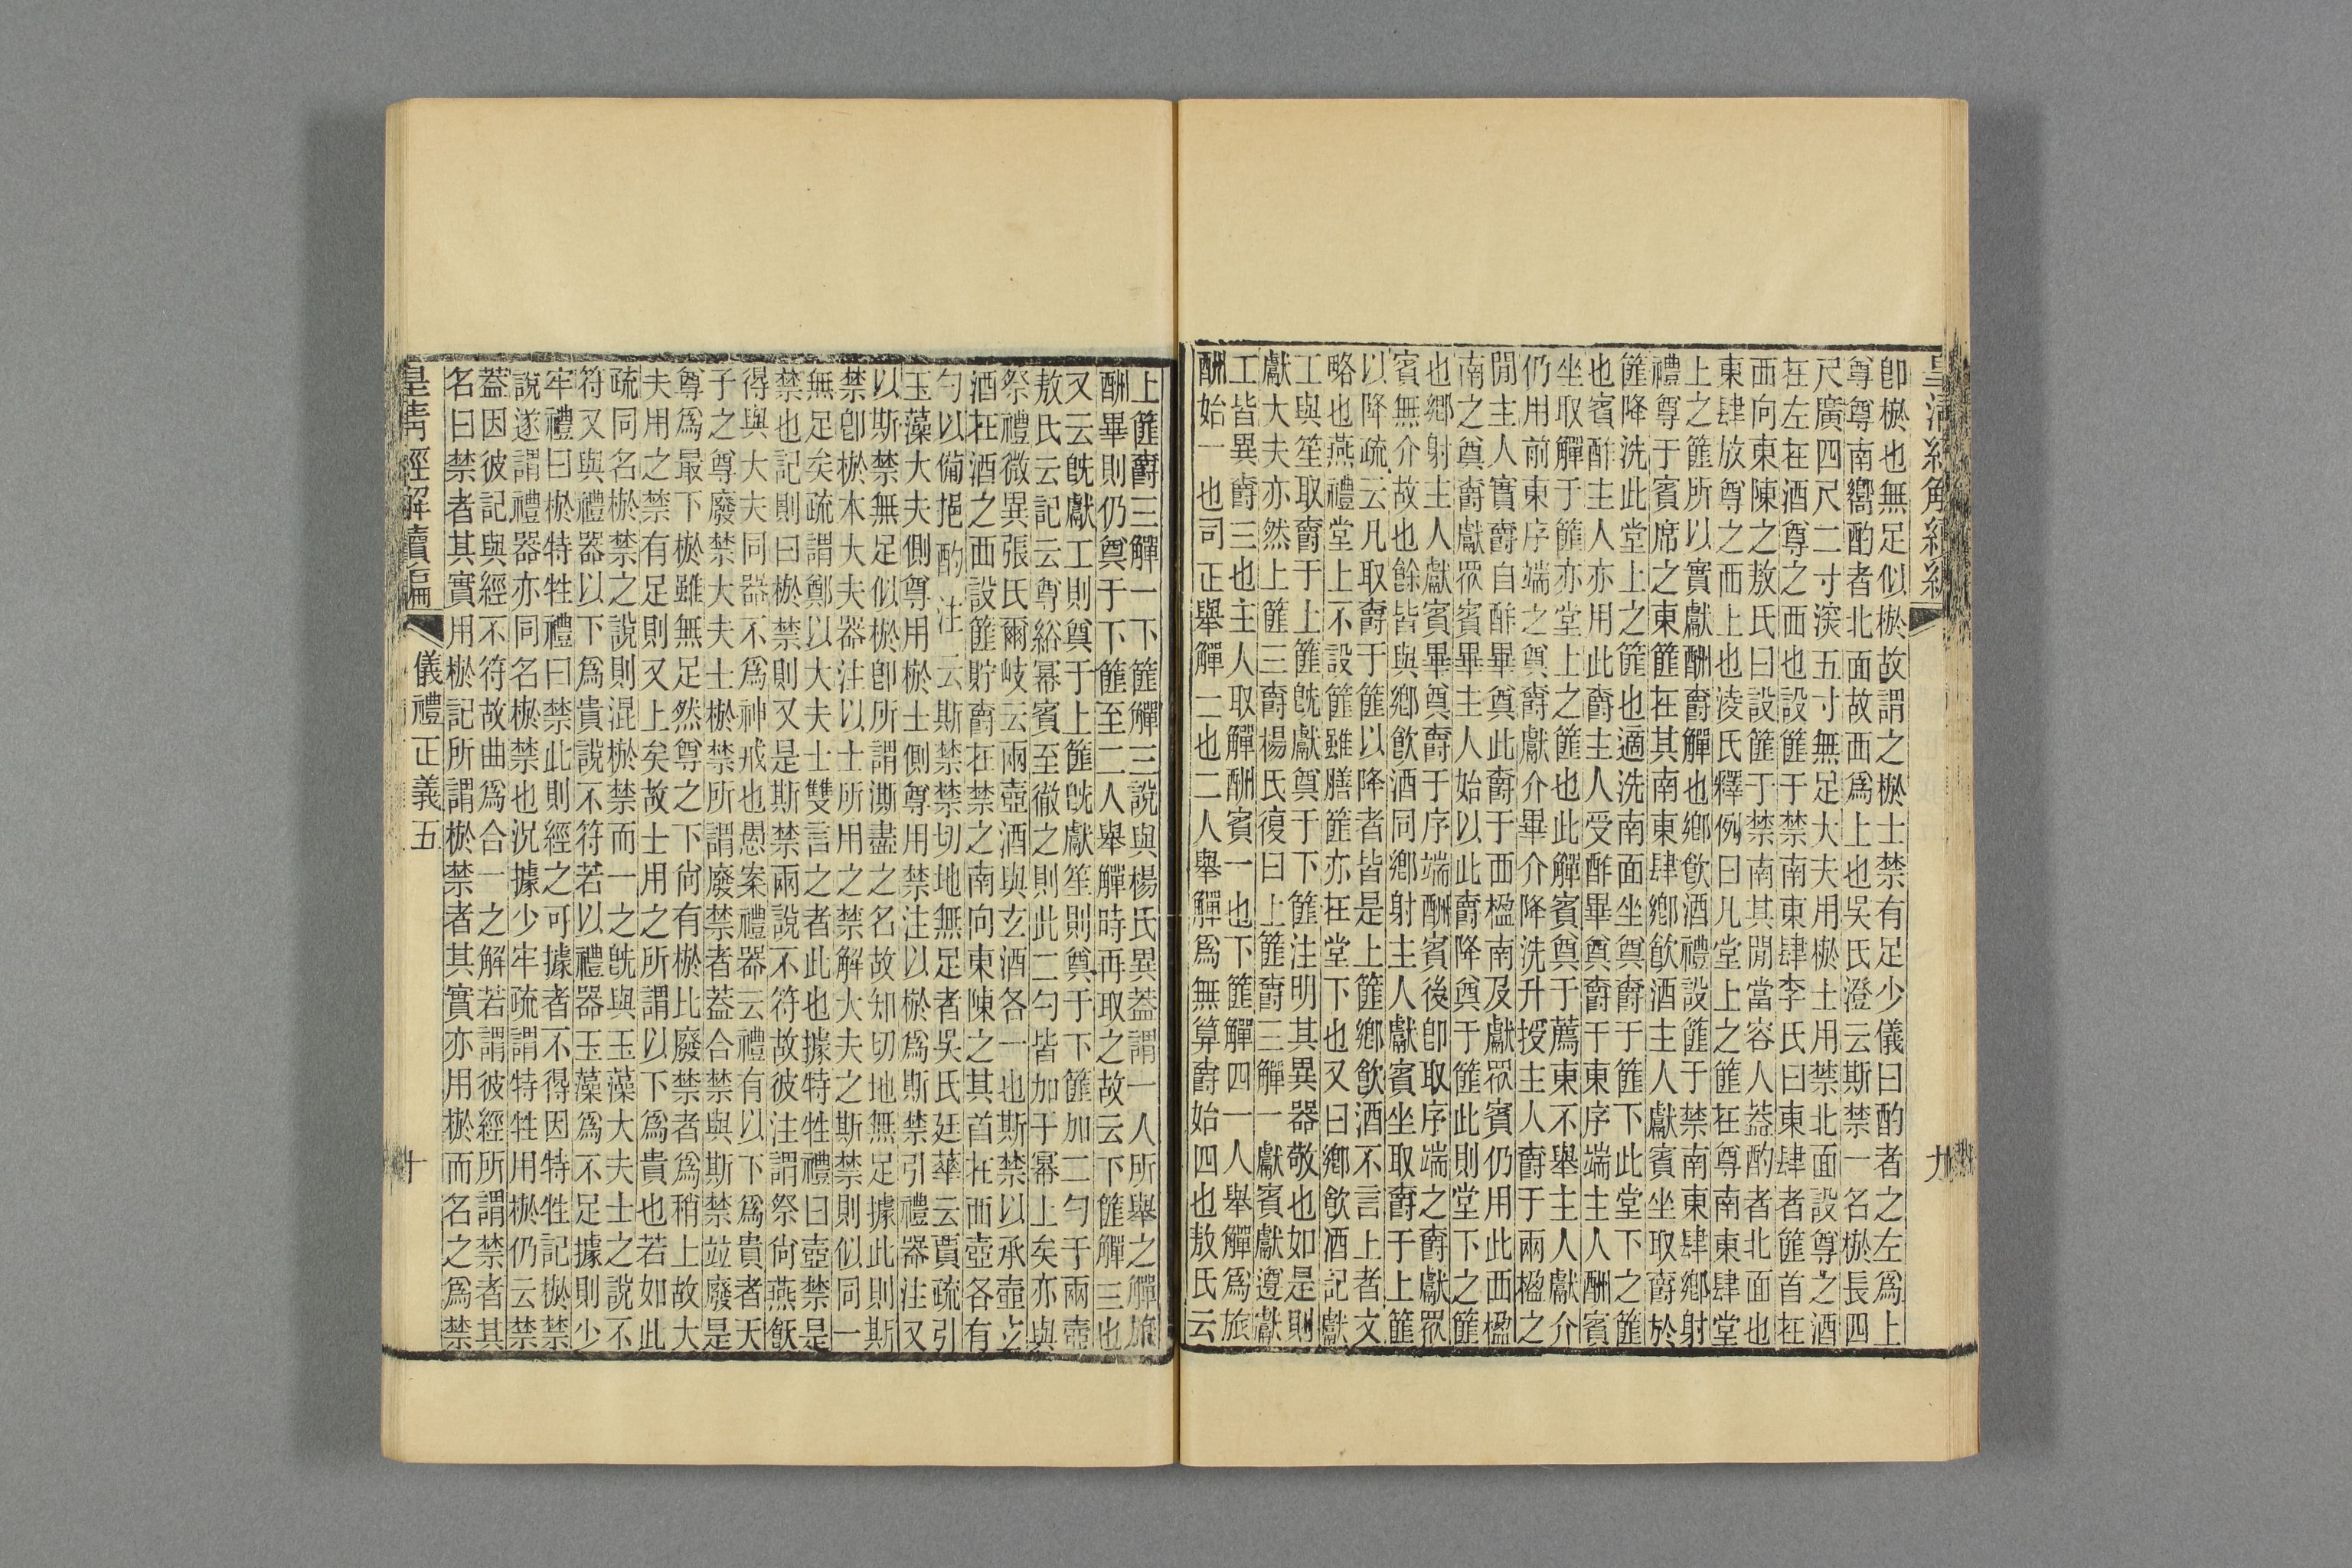 皇清經解續編
九
卽棜也無足似棜故謂之棜士禁有足少儀曰酌者之左爲上
尊尊南嚮酌者北面故西爲上也吳氏澄云斯禁一名棜長四
尺廣四尺二寸深五寸無足大夫用棜士用禁北面設尊之酒
在左在酒尊之西也設篚于禁南東肆李氏曰東肆者篚首在
西向東陳之敖氏曰設篚于禁南其閒當容人葢酌者北面也
東肆放尊之而上也淩氏釋例曰凡堂上之篚在尊南東肆堂
上之篚所以實獻酬爵觶也鄉飮酒禮設篚于禁南東肆鄉射
禮尊于賓席之東篚在其南東肆鄉飮酒主人獻賓坐取爵於
篚降洗此堂上之篚也適洗南面坐奠爵于篚下此堂下之篚
也賓酢主人亦用此爵主人受酢畢奠爵于東序端主人酬賓
坐取觶于篚亦堂上之篚也此觶賓奠于薦東不舉主人獻介
仍用前東序端之奠爵獻介畢介降洗升授主人爵于兩楹之
閒主人實爵自酢畢奠此爵于西楹南及獻眾賓仍用此西楹
南之奠爵獻眾賓畢主人始以此爵降奠于篚此則堂下之篚
也鄉射主人獻賓畢奠爵于序端酬賓後卽取序端之爵獻眾
賓無介故也餘皆與鄉飮酒同鄉射主人獻賓坐取爵于上篚
以降疏云凡取爵于篚以降者皆是上篚鄉飮酒不言上者文
略也燕禮堂上不設篚雖膳篚亦在堂下也又曰鄉飮酒記獻
工與笙取爵于上篚旣獻奠于下篚注明其異器敬也如是則
獻大夫亦然上篚三爵楊氏復曰上篚爵三觶一獻賓獻遵獻
工皆異爵三也主人取觶酬賓一也下篚觶四一人舉觶爲旅
酬始一也司正舉觶二也二人舉觶爲無算爵始四也敖氏云
上篚爵三觶一下篚觶三說與楊氏異葢謂一人所舉之觶旅
酬畢則仍奠于下篚至二人舉觶時再取之故云下篚觶三也
又云旣獻工則奠于上篚旣獻笙則奠于下篚加二勺于兩壺
敖氏云記云尊綌冪賓至徹之則此二勺皆加于冪上矣亦與
祭禮微異張氏爾岐云兩壺酒與玄酒各一也斯禁以承壺玄
酒在酒之西設篚貯爵在禁之南向東陳之其首在西壺各有
勺以備挹酌 注云斯禁禁切地無足者吳氏廷華云賈疏引
玉藻大夫側尊用棜士側尊用禁注以棜爲斯禁引禮器注又
以斯禁無足似棜卽所謂澌盡之名故知切地無足據此則斯
禁卽棜木大夫器注以士所用之禁解大夫之斯禁則似同一
無足矣疏謂鄭以大夫士雙言之者此也據特牲禮曰壺禁是
禁也記則曰棜禁則又是斯禁兩說不符故彼注謂祭尙燕飮
得與大夫同器不爲神戒也愚案禮器云禮有以下爲貴者天
子之尊廢禁大夫士棜禁所謂廢禁者葢合禁與斯禁竝廢是
尊爲最下棜雖無足然尊之下尙有棜比廢禁者爲稍上故大
夫用之禁有足則又上矣故士用之所謂以下爲貴也若如此
疏同名棜禁之說則混棜禁而一之旣與玉藻大夫士之說不
符又與禮器以下爲貴說不符若以禮器玉藻爲不足據則少
牢禮曰棜特牲禮曰禁此則經之可據者不得因特牲記棜禁
說遂謂禮器亦同名棜禁也況據少牢疏謂特牲用棜仍云禁
葢因彼記與經不符故曲爲合一之解若謂彼經所謂禁者其
名曰禁者其實用棜記所謂棜禁者其實亦用棜而名之爲禁
皇清經解續編
儀禮正義五
十